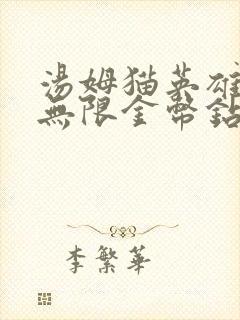 湯姆猫英雄
無限金幣鉆
李繁華